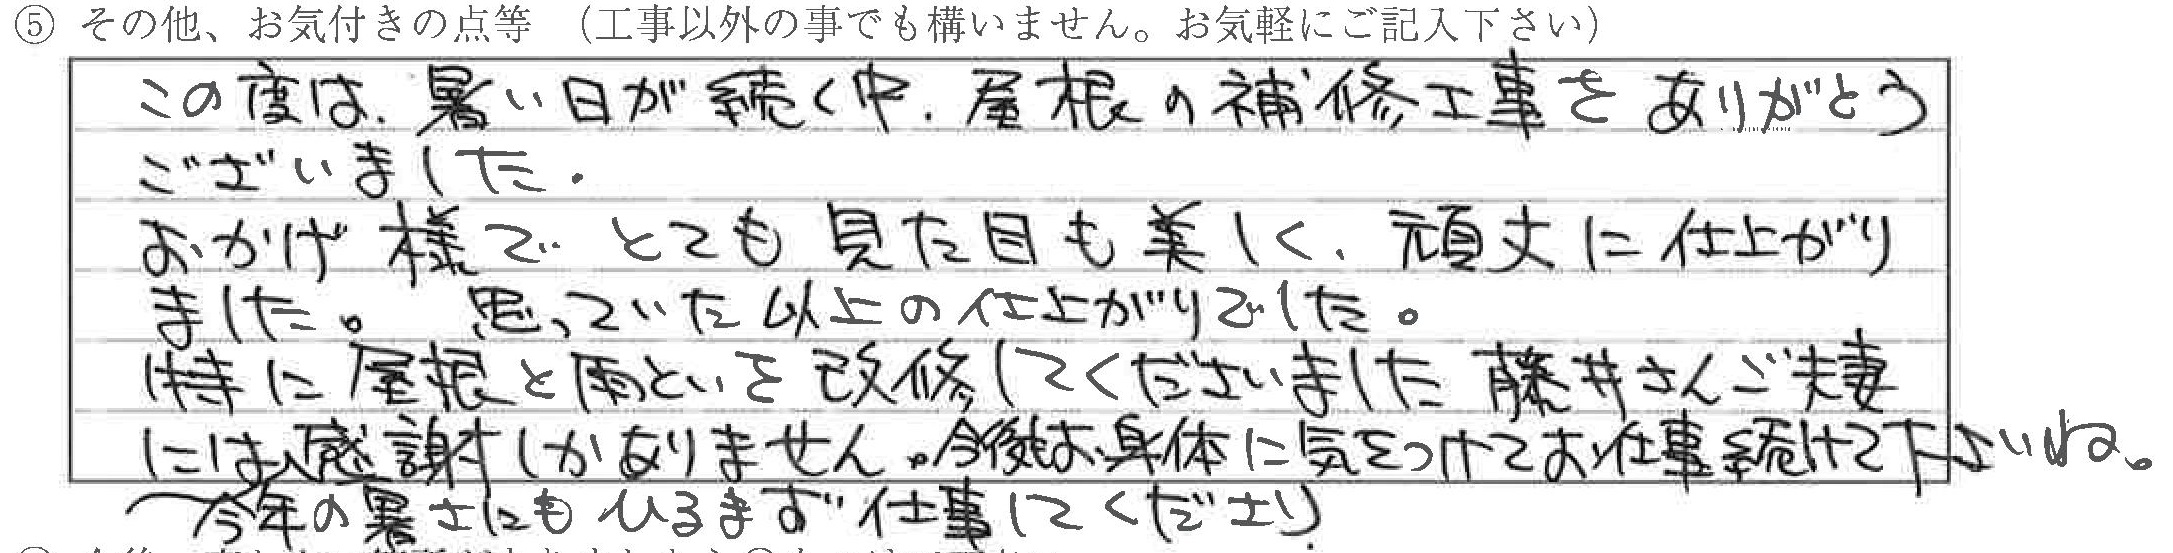 ⑤ その他、お気付きの点等 （工事以外の事でも構いません。お気軽にご記入下さい）
この度は、暑い日が続く中、屋根の補修工事をありがとう
ございました。
おかげ様でとても見た目も美しく、頑丈に仕上がり
ました。思っていた以上の仕上がりでした。
特に屋根と雨といを改修してくださいました藤井さんご夫妻
には感謝しかありません。今後もお身体に気をつけてお仕事続けて下さいね。
今年の暑さにもひるまず仕事してくださり